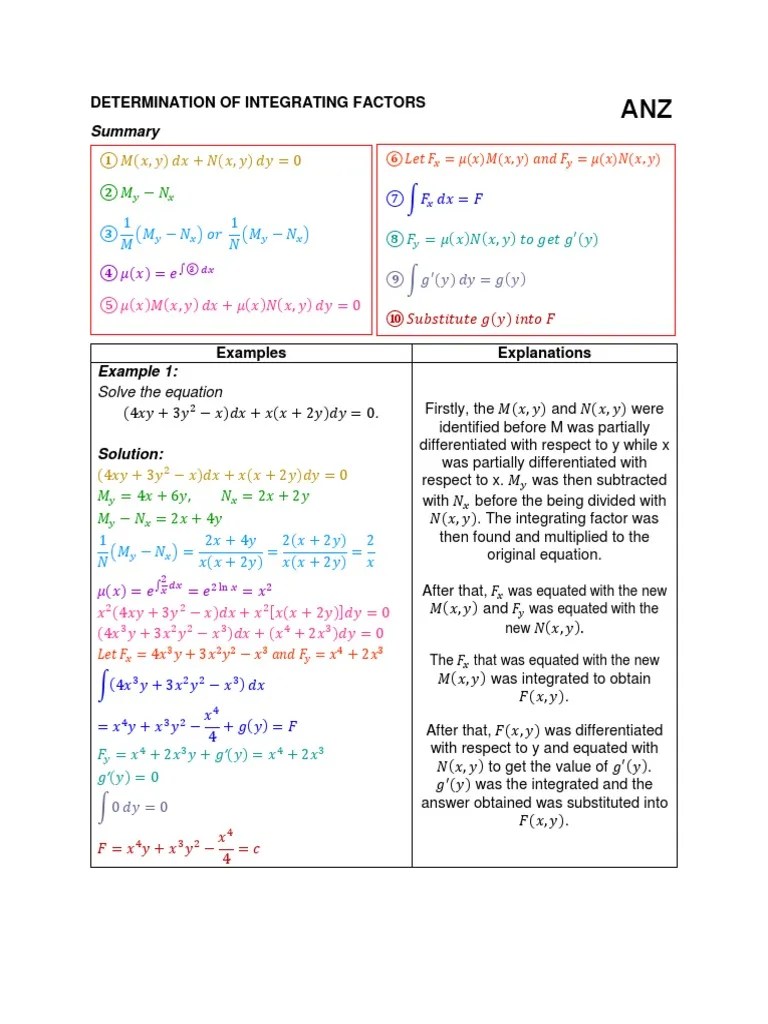 DETERMINATION OF INTEGRATING FACTORS
ANZ
Summary
① M(x, y) dx + N(x, y) dy = 0
② M_y − N_x
③ 1/M (M_y − N_x) or 1/N (M_y − N_x)
④ μ(x) = e^{∫③ dx}
⑤ μ(x)M(x, y) dx + μ(x)N(x, y) dy = 0
⑥ Let F_x = μ(x)M(x, y) and F_y = μ(x)N(x, y)
⑦ ∫ F_x dx = F
⑧ F_y = μ(x)N(x, y) to get g′(y)
⑨ ∫ g′(y) dy = g(y)
⑩ Substitute g(y) into F
Examples
Example 1:
Solve the equation
(4xy + 3y² − x)dx + x(x + 2y)dy = 0.
Solution:
(4xy + 3y² − x)dx + x(x + 2y)dy = 0
M_y = 4x + 6y, N_x = 2x + 2y
M_y − N_x = 2x + 4y
1/N (M_y − N_x) = (2x + 4y)/(x(x + 2y)) = (2(x + 2y))/(x(x + 2y)) = 2/x
μ(x) = e^{∫2/x dx} = e^{2 ln x} = x²
x²(4xy + 3y² − x)dx + x²[x(x + 2y)]dy = 0
(4x³y + 3x²y² − x³)dx + (x⁴ + 2x³)dy = 0
Let F_x = 4x³y + 3x²y² − x³ and F_y = x⁴ + 2x³
∫(4x³y + 3x²y² − x³) dx
= x⁴y + x³y² − x⁴/4 + g(y) = F
F_y = x⁴ + 2x³y + g′(y) = x⁴ + 2x³
g′(y) = 0
∫ 0 dy = 0
F = x⁴y + x³y² − x⁴/4 = c
Explanations
Firstly, the M(x, y) and N(x, y) were
identified before M was partially
differentiated with respect to y while x
was partially differentiated with
respect to x. M_y was then subtracted
with N_x before the being divided with
N(x, y). The integrating factor was
then found and multiplied to the
original equation.
After that, F_x was equated with the new
M(x, y) and F_y was equated with the
new N(x, y).
The F_x that was equated with the new
M(x, y) was integrated to obtain
F(x, y).
After that, F(x, y) was differentiated
with respect to y and equated with
N(x, y) to get the value of g′(y).
g′(y) was the integrated and the
answer obtained was substituted into
F(x, y).